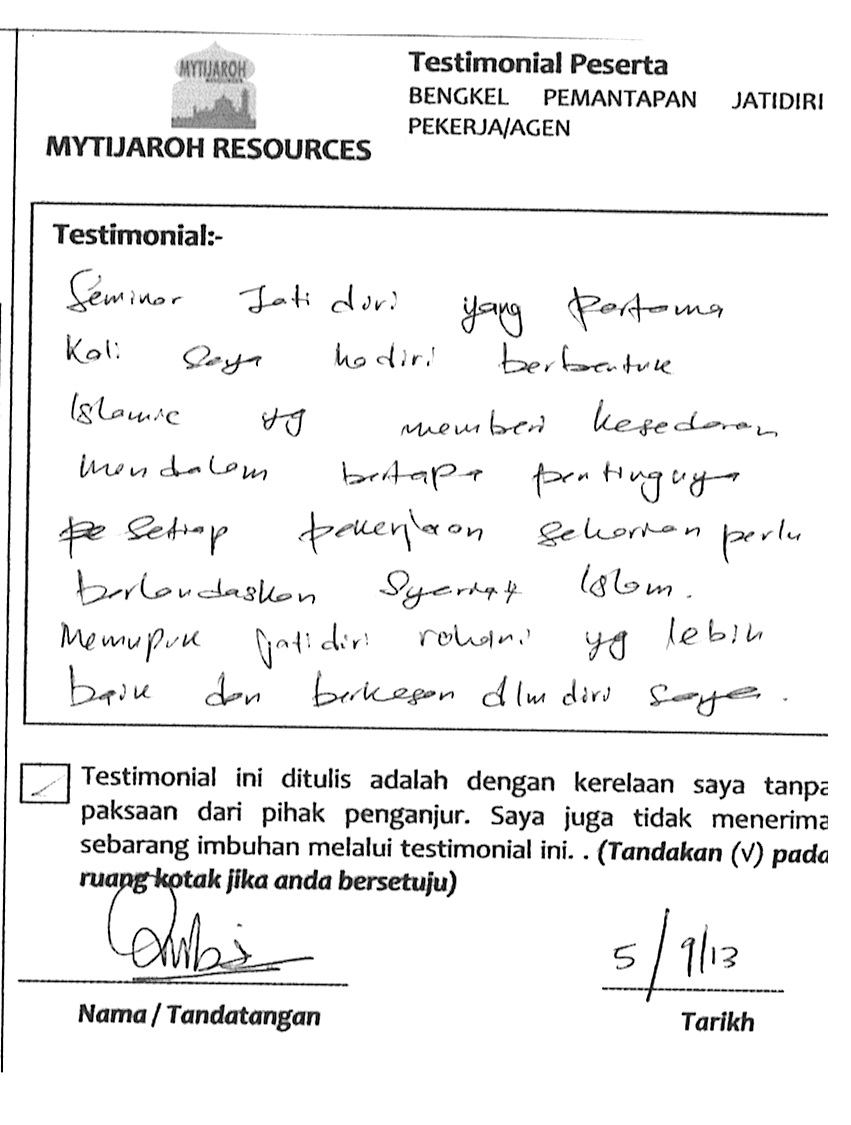 MYTIJAROH
RESOURCES
MYTIJAROH RESOURCES
Testimonial Peserta
BENGKEL PEMANTAPAN JATIDIRI
PEKERJA/AGEN
Testimonial:-
Seminar Jati diri yang pertama
kali saya hadiri berbentuk
Islamic yg memberi kesedaran
mendalam betapa pentingnya
setiap pekerjaan seharian perlu
berlandaskan Syariat Islam.
Memupuk jatidiri rohani yg lebih
baik dan berkesan dlm diri saya.
Testimonial ini ditulis adalah dengan kerelaan saya tanpa
paksaan dari pihak penganjur. Saya juga tidak menerima
sebarang imbuhan melalui testimonial ini. . (Tandakan (√) pada
ruang kotak jika anda bersetuju)
5/9/13
Nama / Tandatangan
Tarikh